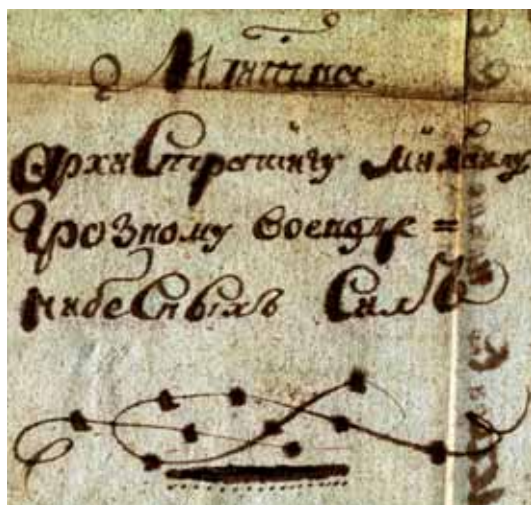 АрхиСтратигу Михаилу
Грозному воеводе =
небеСныхъ Силъ